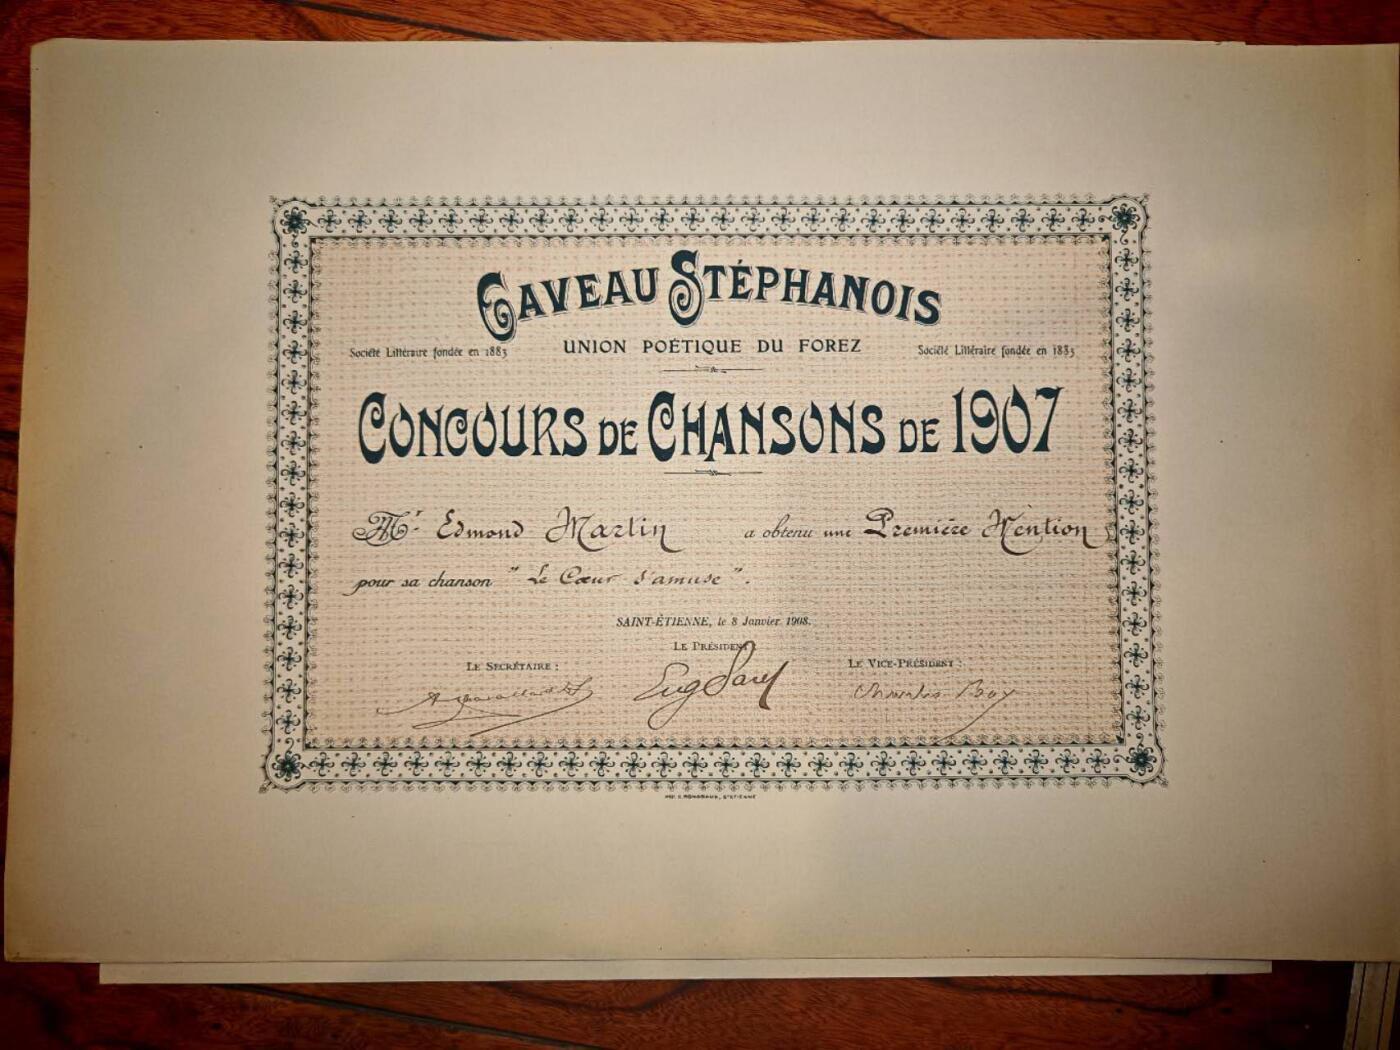 CAVEAU STÉPHANOIS
Société Littéraire fondée en 1883 UNION POÉTIQUE DU FOREZ Société Littéraire fondée en 1883
CONCOURS DE CHANSONS DE 1907
Mr Edmond Martin a obtenu une Première Mention
pour sa chanson "Le Cœur s'amuse".
SAINT-ÉTIENNE, le 8 Janvier 1908.
LE PRÉSIDENT :
LE SECRÉTAIRE : LE VICE-PRÉSIDENT :
Charles Boy
ST-ETIENNE